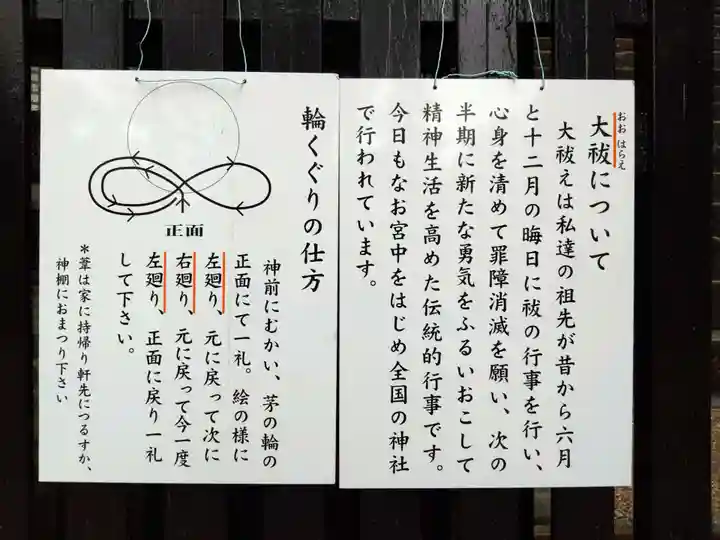 おおはらえ
大祓について
大祓えは私達の祖先が昔から六月
と十二月の晦日に祓の行事を行い、
心身を清めて罪障消滅を願い、次の
半期に新たな勇気をふるいおこして
精神生活を高めた伝統的行事です。
今日もなお宮中をはじめ全国の神社
で行われています。
輪くぐりの仕方
正面
神前にむかい、茅の輪の
正面にて一礼。絵の様に
左廻り、元に戻って次に
右廻り、元に戻って今一度
左廻り、正面に戻り一礼
して下さい。
*葦は家に持帰り軒先につるすか、
神棚におまつり下さい